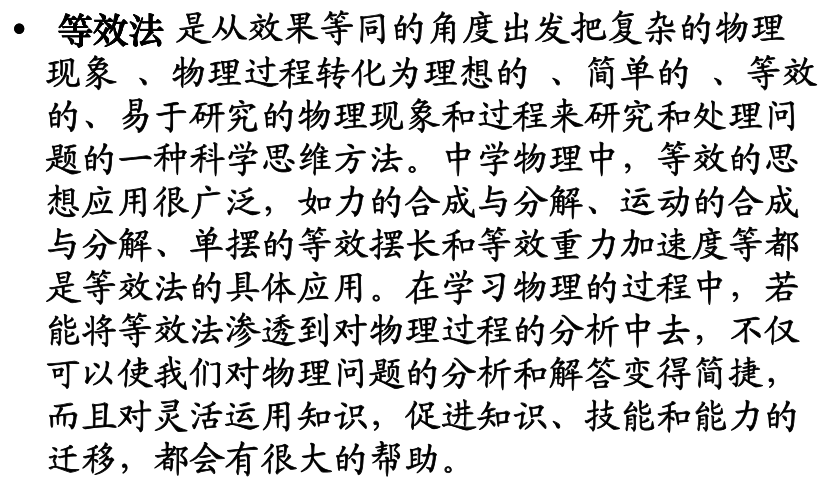 • 等效法 是从效果等同的角度出发把复杂的物理
现象 、物理过程转化为理想的 、简单的 、等效
的、易于研究的物理现象和过程来研究和处理问
题的一种科学思维方法。中学物理中，等效的思
想应用很广泛，如力的合成与分解、运动的合成
与分解、单摆的等效摆长和等效重力加速度等都
是等效法的具体应用。在学习物理的过程中，若
能将等效法渗透到对物理过程的分析中去，不仅
可以使我们对物理问题的分析和解答变得简捷，
而且对灵活运用知识，促进知识、技能和能力的
迁移，都会有很大的帮助。